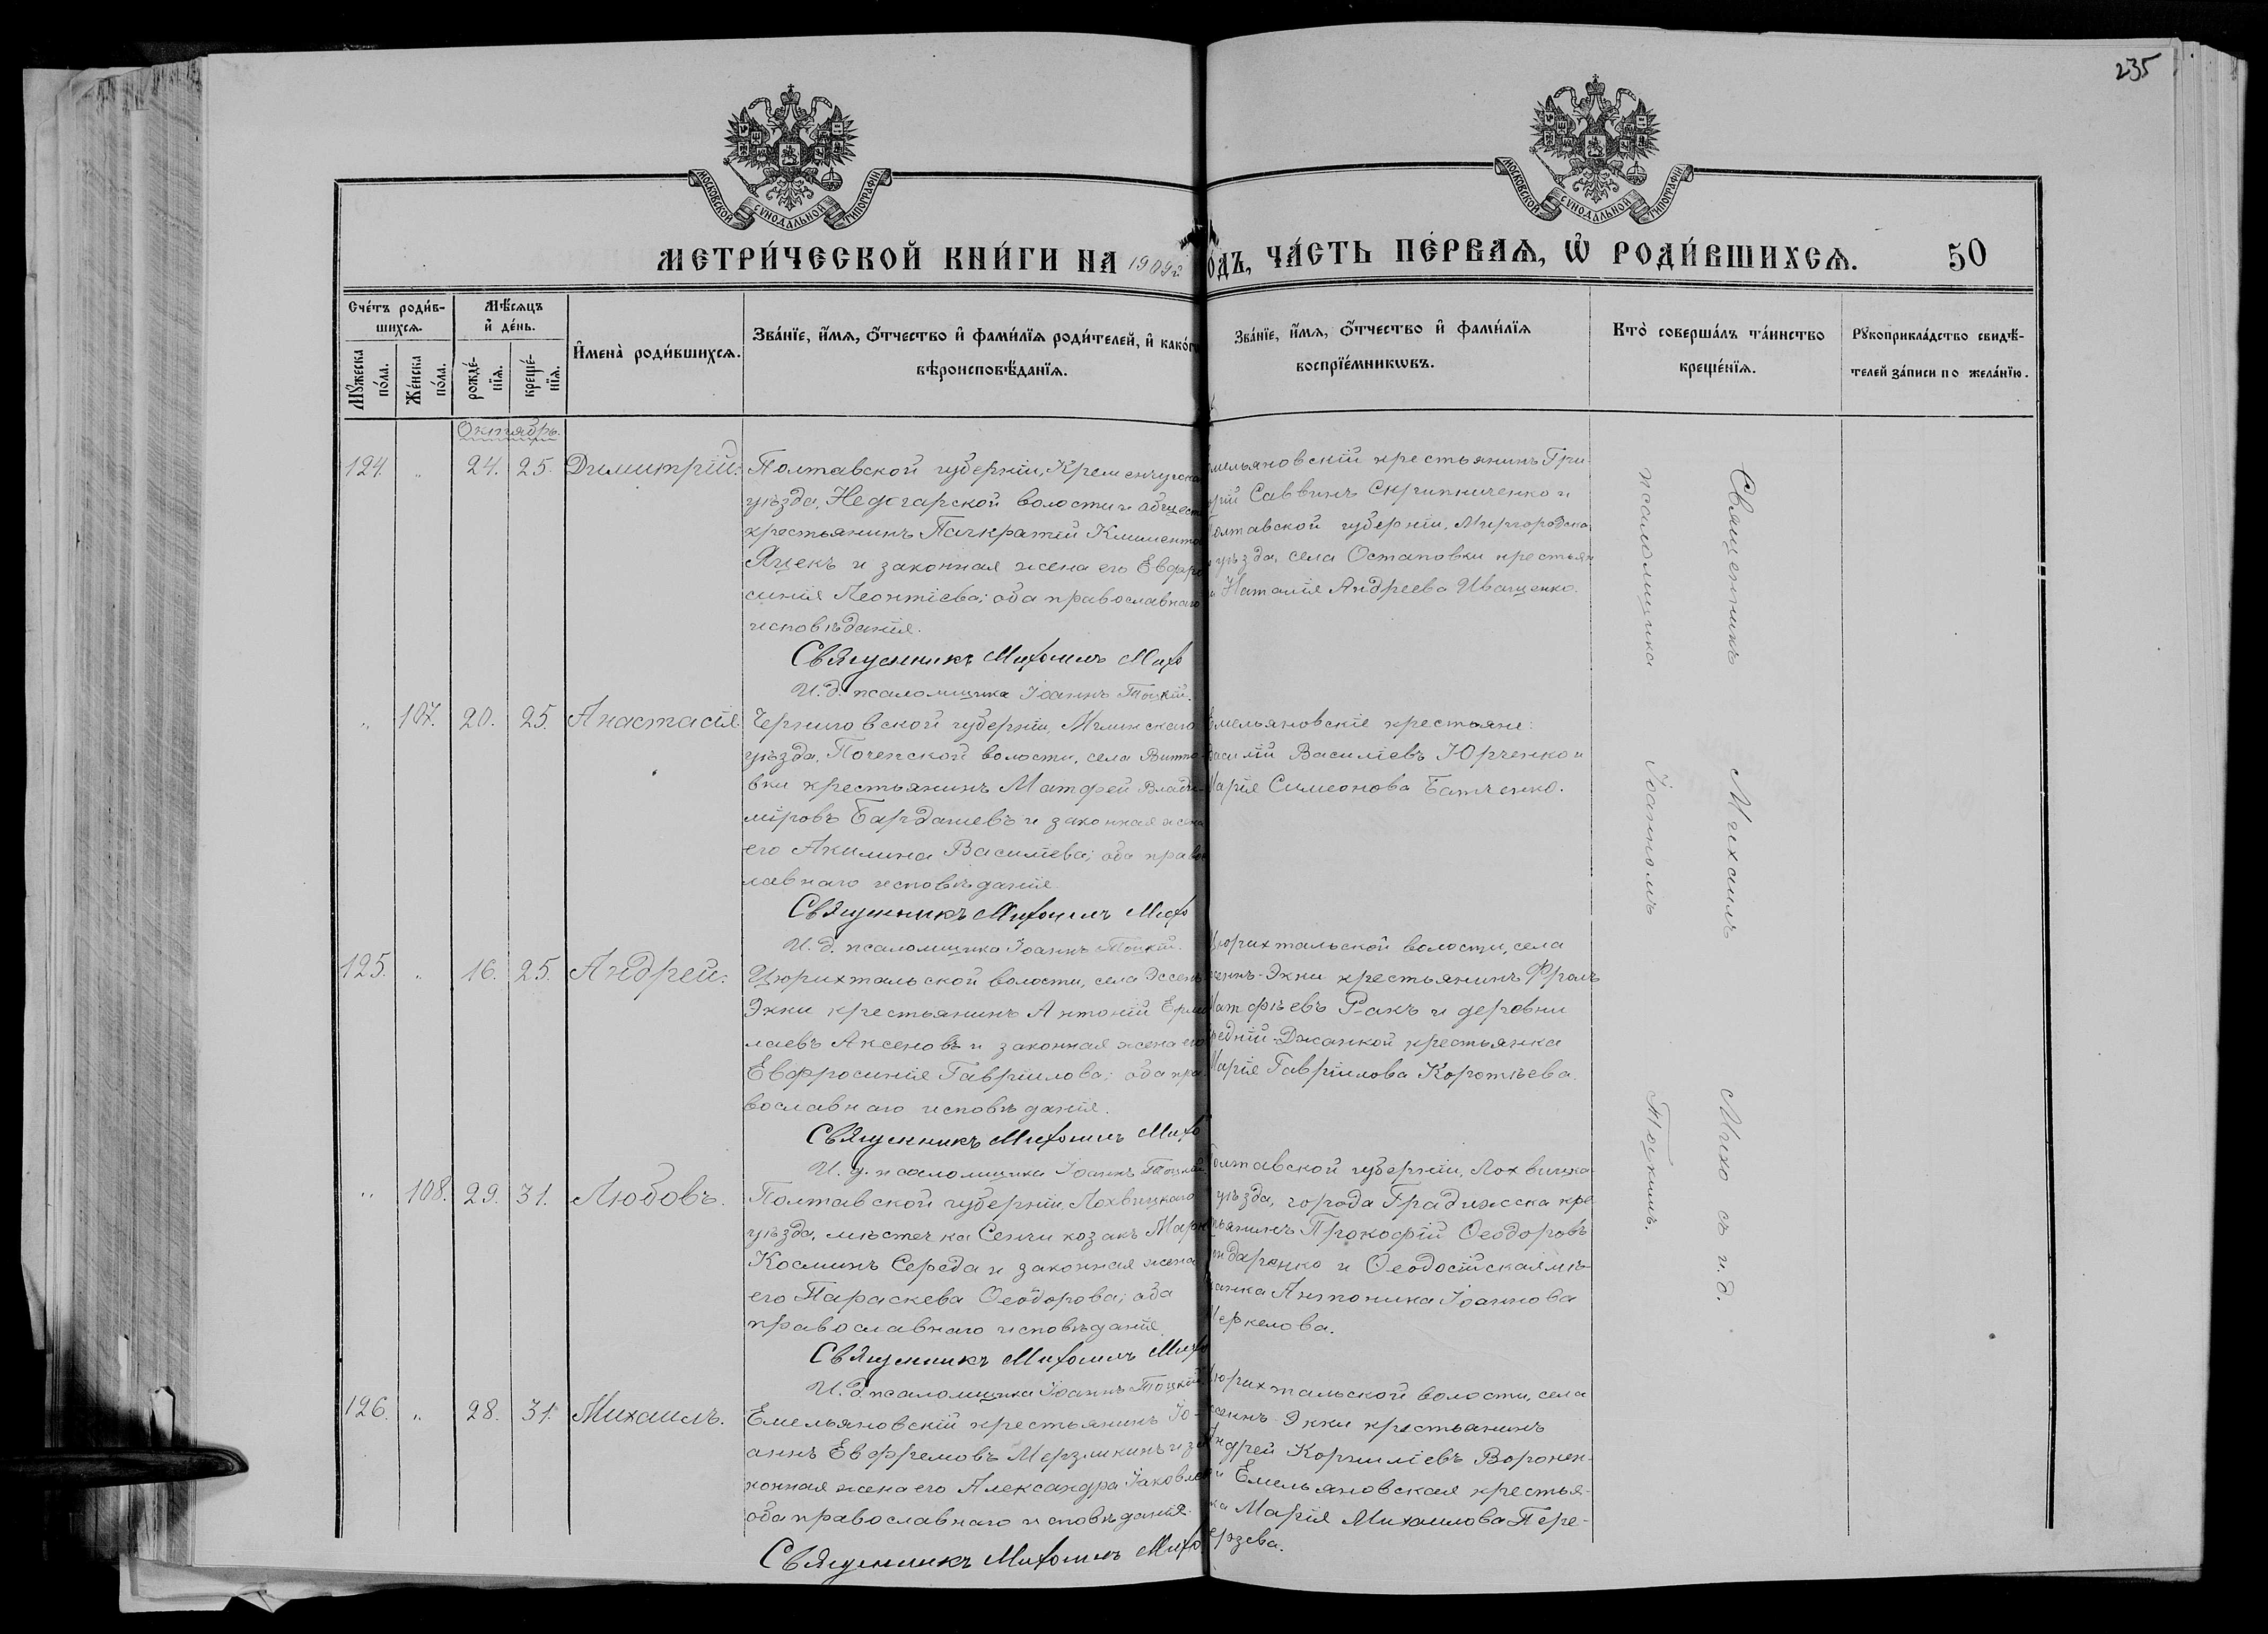 235
МОСКОВСКОЙ СѴНОДАЛЬНОЙ ТИПОГРАФІИ
МОСКОВСКОЙ СѴНОДАЛЬНОЙ ТИПОГРАФІИ
МЕТРИ́ЧЕСКОЙ КНИ́ГИ НА 1909 г. ОДЪ, ЧА́СТЬ ПЕ́РВАѦ, Ѡ҆ РОДИ́ВШИХСѦ. 50
Сче́тъ роди́в-
шихсѧ.
Мꙋ́жеска
по́ла.
Же́нска
по́ла.
Мѣ́сѧцъ
и҆ де́нь.
рожде́-
нїѧ.
креще́-
нїѧ.
И҆мена̀ роди́вшихсѧ.
Зва́нїе, и҆́мѧ, о҆́тчество и҆ фами́лїѧ роди́телей, и҆ како́г
вѣроисповѣ́данїѧ.
Зва́нїе, и҆́мѧ, о҆́тчество и҆ фами́лїѧ
воспрїе́мникѡвъ.
Кто̀ соверша́лъ та́инство
креще́нїѧ.
Рꙋкоприкла́дство свидѣ́-
телей за́писи по жела́нїю.
Октябрь.
124. „ 24. 25. Димитрій.
Полтавской губерніи, Кременчугска
уѣзда, Недогарской волости и общест
крестьянинъ Панкратій Климентов
Яценъ и законная жена его Евфро
синія Леонтіева; оба православнаго
исповѣданія.
Священникъ Михаилъ Михо
И. д. псаломщика Іоаннъ Тоцкій.
мельяновскій крестьянинъ Гри-
орій Саввинъ Скрипниченко и
олтавской губерніи, Миргородска
уѣзда, села Остаповки крестьян
Наталія Андреева Иващенко.
„ 107. 20. 25. Анастасія.
Черниговской губерніи, Мглинскаго
уѣзда, Почепской волости, села Витто-
вки крестьянинъ Матфей Влади-
міровъ Бардашевъ и законная жена
его Акилина Василіева; оба правос
лавнаго исповѣданія.
Священникъ Михаилъ Михо
И. д. псаломщика Іоаннъ Тоцкій.
Емельяновскіе крестьяне:
Василій Василіевъ Юрченко и
Марія Симеонова Батченко.
125. „ 16. 25. Андрей.
Цюрихтальской волости, села Эссенъ
Экки крестьянинъ Антоній Ермо
лаевъ Аксеновъ и законная жена его
Евфросинія Гавріилова; оба пра-
вославнаго исповѣданія.
Священникъ Михаилъ Михо
И. д. псаломщика Іоаннъ Тоцкій.
Цюрихтальской волости, села
сенъ-Экки крестьянинъ Фролъ
Матфѣевъ Ракъ и деревни
Средній-Джанкой крестьянка
Марія Гавріилова Коротѣева.
„ 108. 29. 31. Любовь.
Полтавской губерніи, Лохвицкаго
уѣзда, мѣстечка Сенчи козакъ Марк
Косминъ Середа и законная жена
его Параскева Ѳеодорова; оба
православнаго исповѣданія.
Священникъ Михаилъ Михо
И. д. псаломщика Іоаннъ Тоцкій.
олтавской губерніи, Лохвицка-
уѣзда, города Градижска кре-
тьянинъ Прокофій Ѳеодоровъ
ндаренко и Ѳеодосійская мѣ-
щанка Антонина Іоаннова
Меркелова.
126. „ 28. 31. Михаилъ.
Емельяновскій крестьянинъ Іо-
аннъ Евфремовъ Мерзликинъ и за
конная жена его Александра Іаковлев
оба православнаго исповѣданія.
Священникъ Михаилъ Михо
Цюрихтальской волости, села
сенъ-Экки крестьянинъ
Андрей Корниліевъ Воронен-
и Емельяновская крестья-
ка Марія Михаилова Пере-
ерзева.
Священникъ Михаилъ Михо съ и. д.
псаломщика Іоанномъ Тоцкимъ.